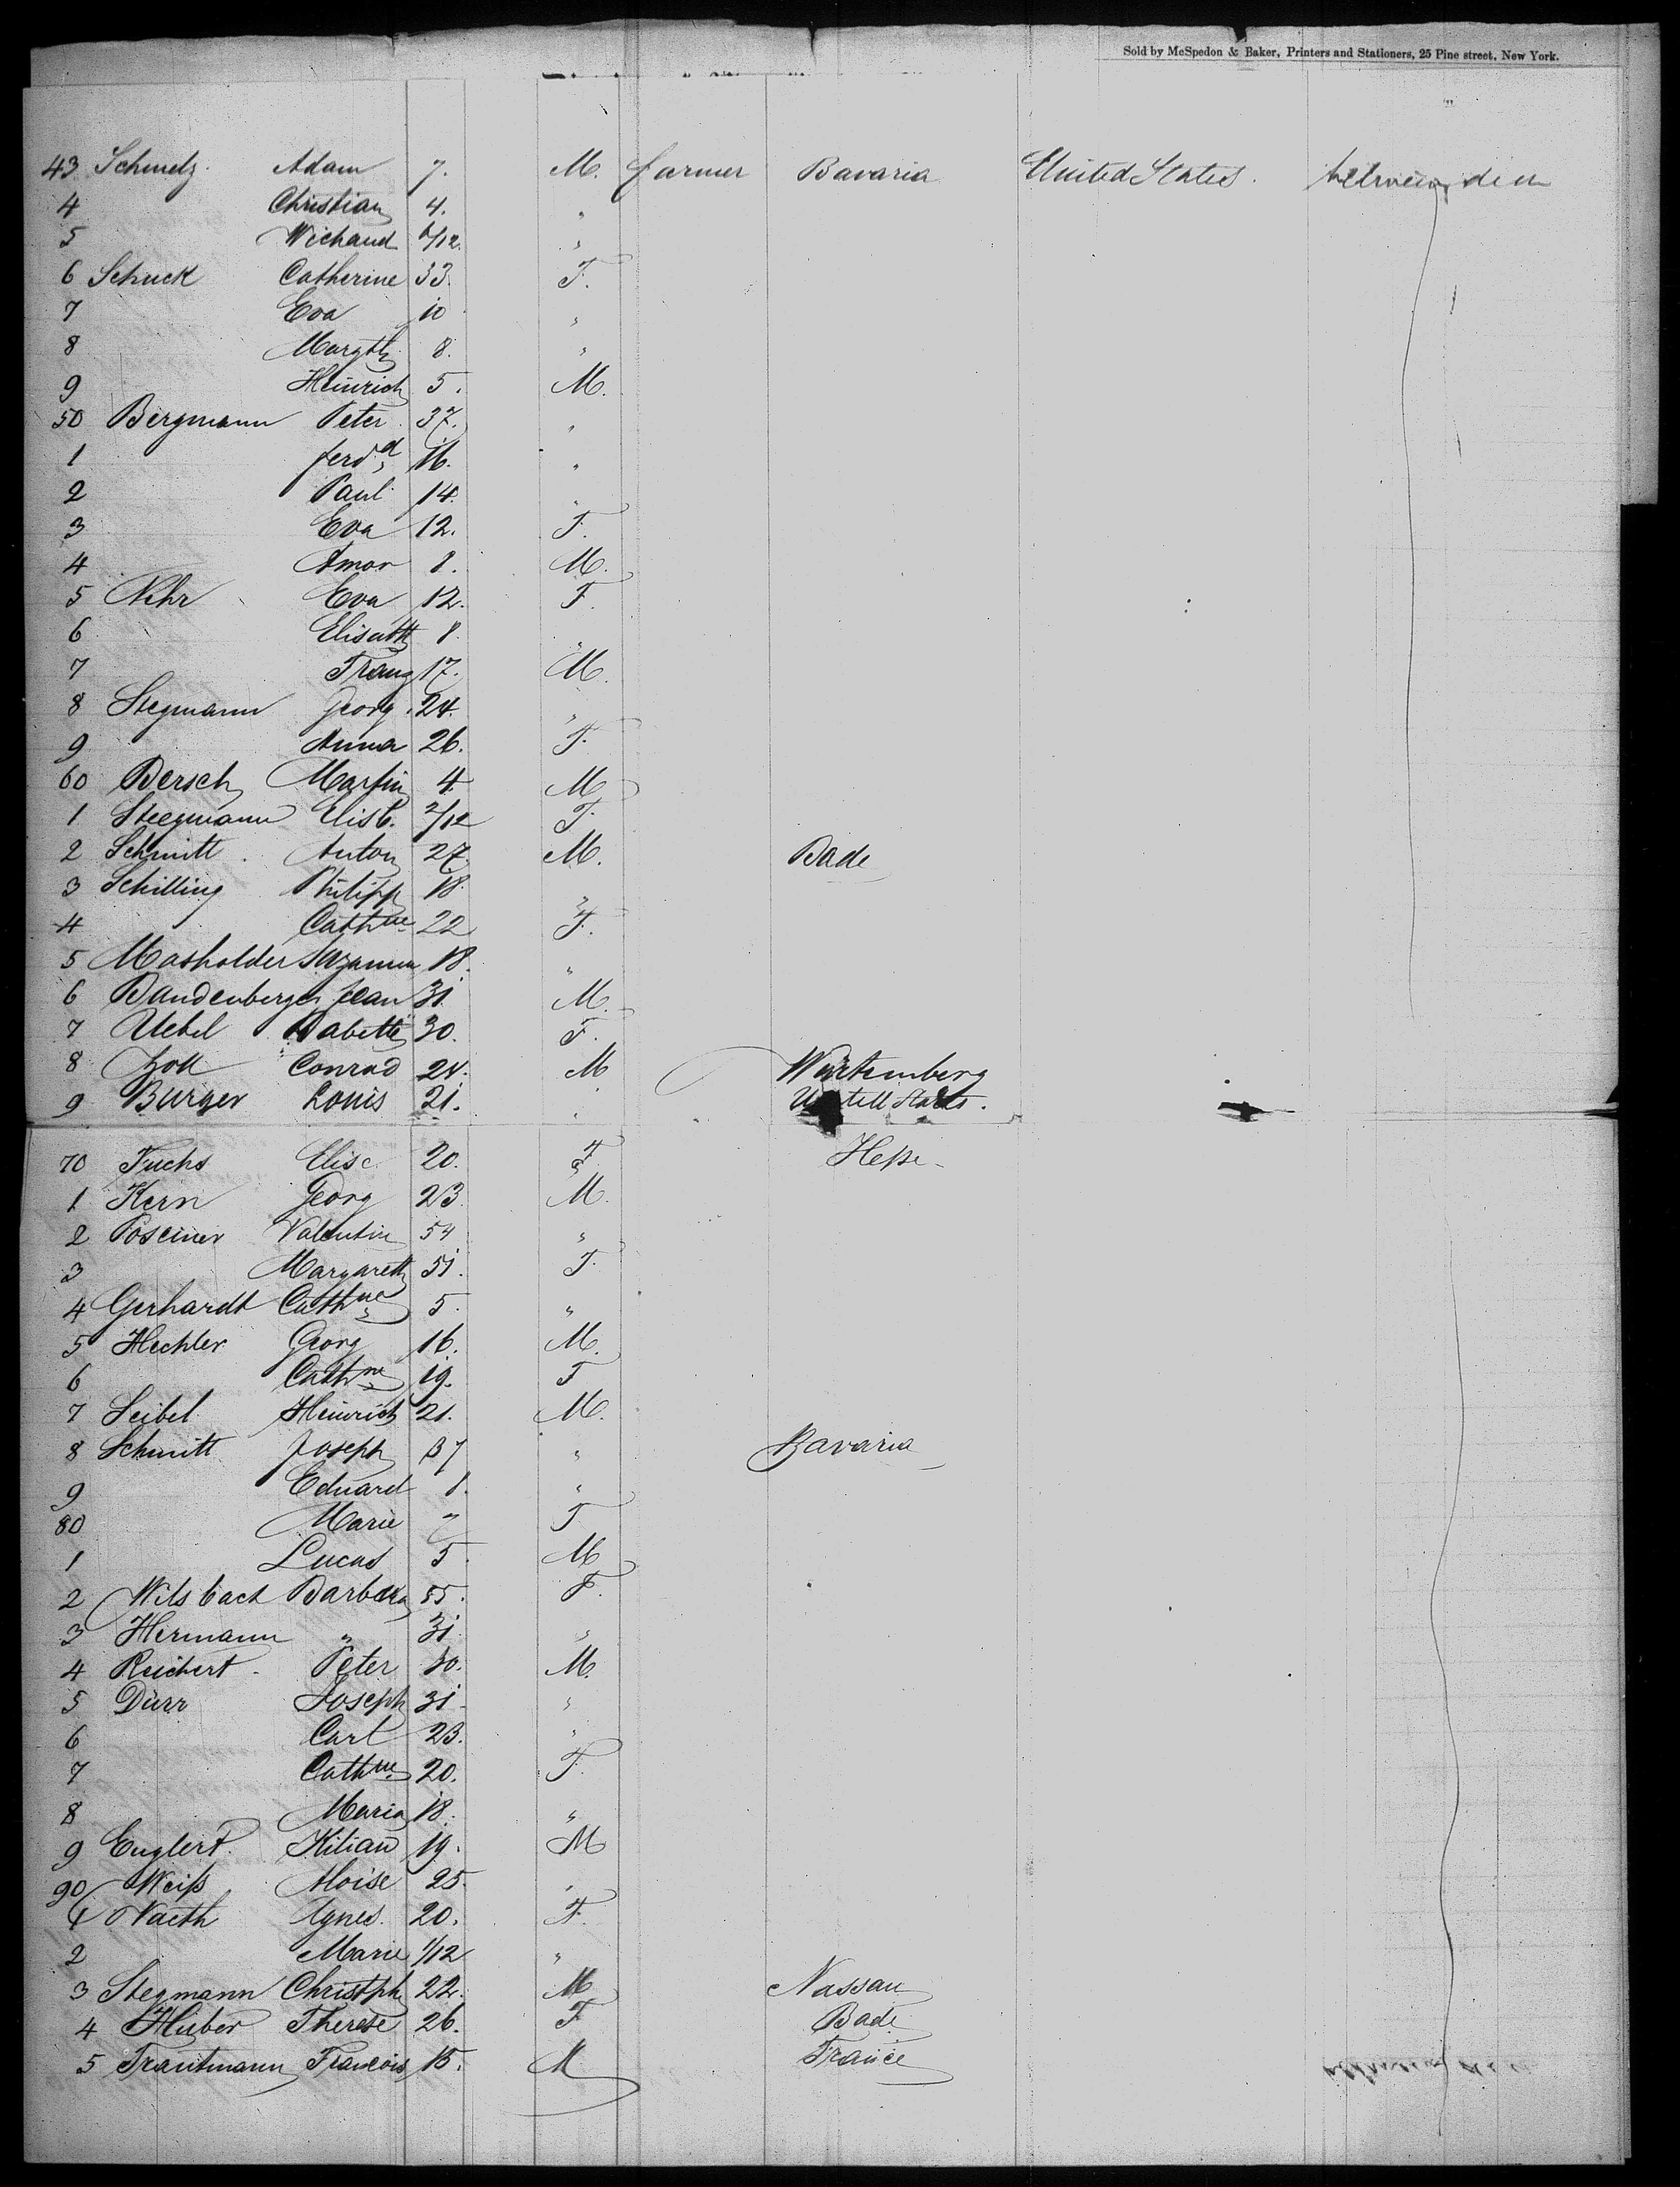 Sold by McSpedon & Baker, Printers and Stationers, 25 Pine street, New York.
43 Schmelz Adam 7. M. farmer Bavaria United States. between deck
4 Christian 4. "
5 6/12. "
6 Schuck Catherine 33. F.
7 Eva 10 "
8 Margth 8. "
9 Heinrich 5. M.
50 Bergmann Peter 37. "
1 ferdd 16. "
2 Paul 14. "
3 Eva 12. F.
4 Amor 8. M.
5 Nehr Eva 12. F.
6 Elisabth 8. "
7 Franz 17. M.
8 Stegmann Georg 24. "
9 Anna 26. F.
60 Dersch Martin 4. M
1 Steegmann Elisb. 2/12 F.
2 Schmitt Anton 27. M. Bade
3 Schilling Philipp 18. "
4 Cathne 22 F.
5 Masholder Suzanna 18. "
6 Dandenberger Jean 31 M.
7 Uebel Babette 30. F.
8 Zoll Conrad 24. M Würtemberg
9 Burger Louis 21. " States.
70 Fuchs Elise 20. F Heße
1 Kern Georg 23. M.
2 Poseiner Valentin 54 "
3 Margareth 51. F.
4 Gerhardt Cathne 5. "
5 Hechler Georg 16. M.
6 Cathne 19. F
7 Seibel Heinrich 21. M.
8 Schmitt Joseph 37 " Bavaria
9 Eduard 8. "
80 Marie 7 F
1 Lucas 5. M
2 Wilsbach Barbara 55. F.
3 Hermann " 31 "
4 Reichert Peter 30. M.
5 Dürr Joseph 31 "
6 Carl 23. "
7 Cathne 20. F.
8 Maria 18. "
9 Englert Kilian 19. M
90 Weiß Aloise 25. "
1 Naeth Agnes. 20. F.
2 Marie 1/12 "
3 Stegmann Christph 22. M Nassau
4 Huber Therese 26. F Bade
5 Trautmann Francois 15. M France